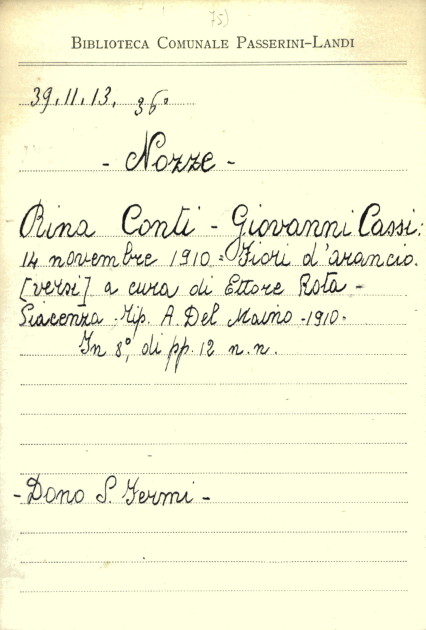 75)
BIBLIOTECA COMUNALE PASSERINI-LANDI
39.11.13. 36°
- Nozze -
Rina Conti - Giovanni Cassi:
14 novembre 1910 = Fiori d'arancio.
[versi] a cura di Ettore Rota -
Piacenza - Tip. A. Del Maino - 1910.
In 8°, di pp. 12 n. n.
- Dono S. Fermi -